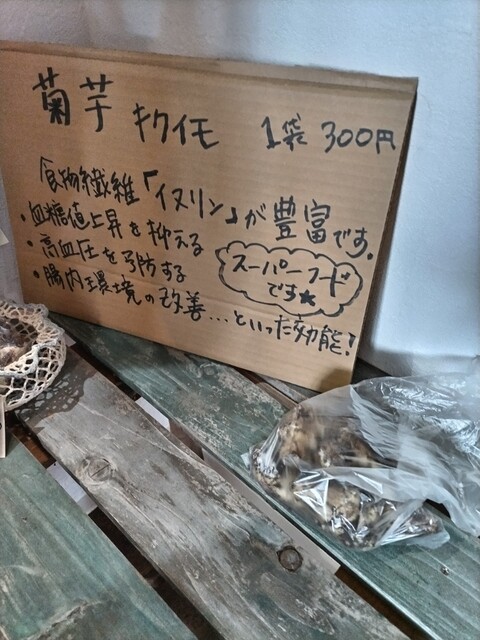 菊芋 キクイモ 1袋 300円
食物繊維「イヌリン」が豊富です。
・血糖値上昇を抑える
・高血圧を予防する
・腸内環境の改善...といった効能!
スーパーフード
です★